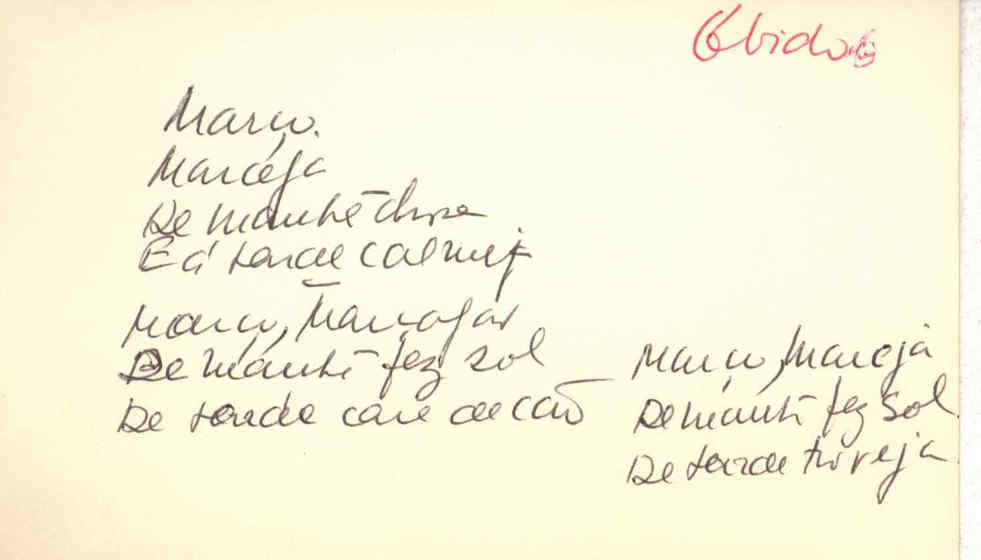 Óbidos
Março
Marceja
De manhã chove
E á tarde calmeja
Março, Marçagar
De manhã fez sol
De tarde cara de cão
Março, Marceja
De manhã fez sol
De tarde troveja